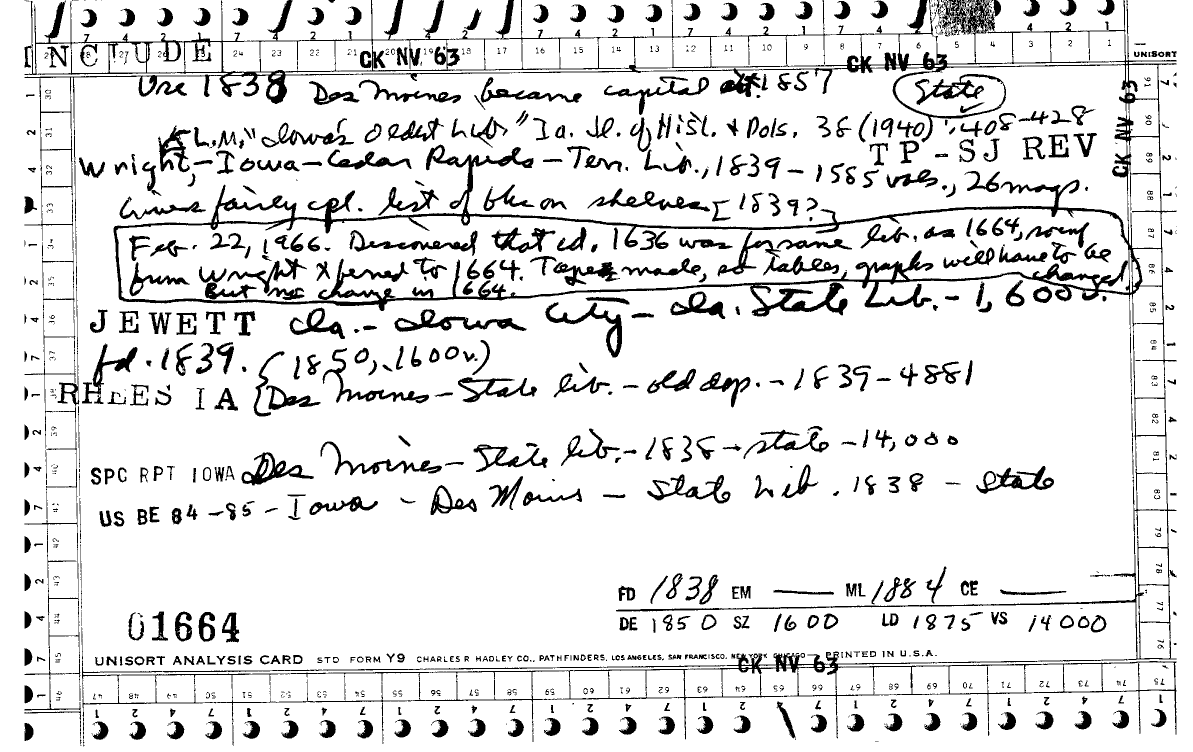 7 4 2 1 7 4 2 1 7 4 2 1 7 4 2 1 7 4 2 1
24 23 22 21 20 19 18 17 16 15 14 13 12 11 10 9 8 7 6 5 4 3 2 1 UNISORT
INCLUDE CK NV 63 CK NV 63
Use 1838 Des Moines became capital 1857 State
L.M., "Iowa's Oldest Lib" Ia. Jl. of Hist. & Pols. 38 (1940): 408-428
TP-SJ REV
Wright,-Iowa-Cedar Rapids-Terr. Lib., 1839-1585 vols., 26 mags.
Gives fairly cpl. list of bks on shelves [1839?]
CK NV 63
Feb. 22, 1966. Discovered that cd. 1636 was for same lib. as 1664, so inf
from Wright Xferred to 1664. Tapes made, so tables, graphs will have to be
changed.
But no change in 1664.
JEWETT Ia.-Iowa City-Ia. State Lib.-1,600v.
fd. 1839. (1850, 1600v.)
RHEES IA [Des Moines-State lib.-old dep.-1839-4881
SPC RPT IOWA Des Moines-State lib.-1838-state-14,000
US BE 84-85-Iowa - Des Moines - State Lib. 1838 - State
FD 1838 EM — ML 1884 CE —
DE 1850 SZ 1600 LD 1875 VS 14000
01664
UNISORT ANALYSIS CARD STD FORM Y9 CHARLES R HADLEY CO., PATHFINDERS, LOS ANGELES, SAN FRANCISCO, NEW YORK CHICAGO PRINTED IN U.S.A.
CK NV 63
47 48 49 50 51 52 53 54 55 56 57 58 59 60 61 62 63 64 65 66 67 68 69 70 71 72 73 74 75
1 2 4 7 1 2 4 7 1 2 4 7 1 2 4 7 1 2 4 7 1 2 4 7 1 2 4 7